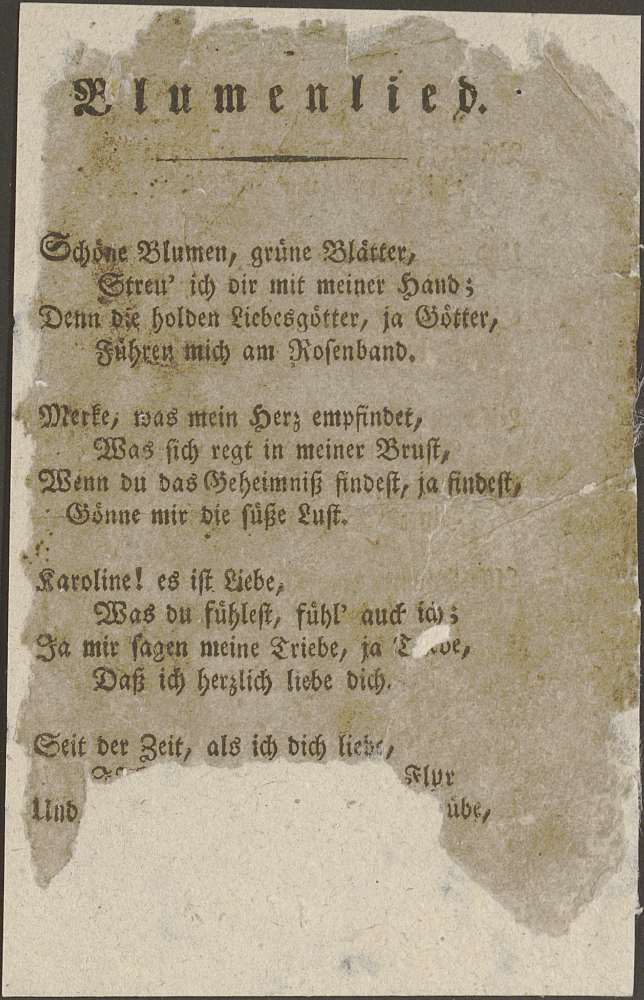 Blumenlied.
Schöne Blumen, grüne Blätter,
Streu' ich dir mit meiner Hand;
Denn die holden Liebesgötter, ja Götter,
Führen mich am Rosenband.
Merke, was mein Herz empfindet,
Was sich regt in meiner Brust,
Wenn du das Geheimniß findest, ja findest,
Gönne mir die süße Lust.
Karoline! es ist Liebe,
Was du fühlest, fühl' auch ich;
Ja mir sagen meine Triebe, ja
Daß ich herzlich liebe dich.
Seit der Zeit, als ich dich liebe,
Flur
Und übe,